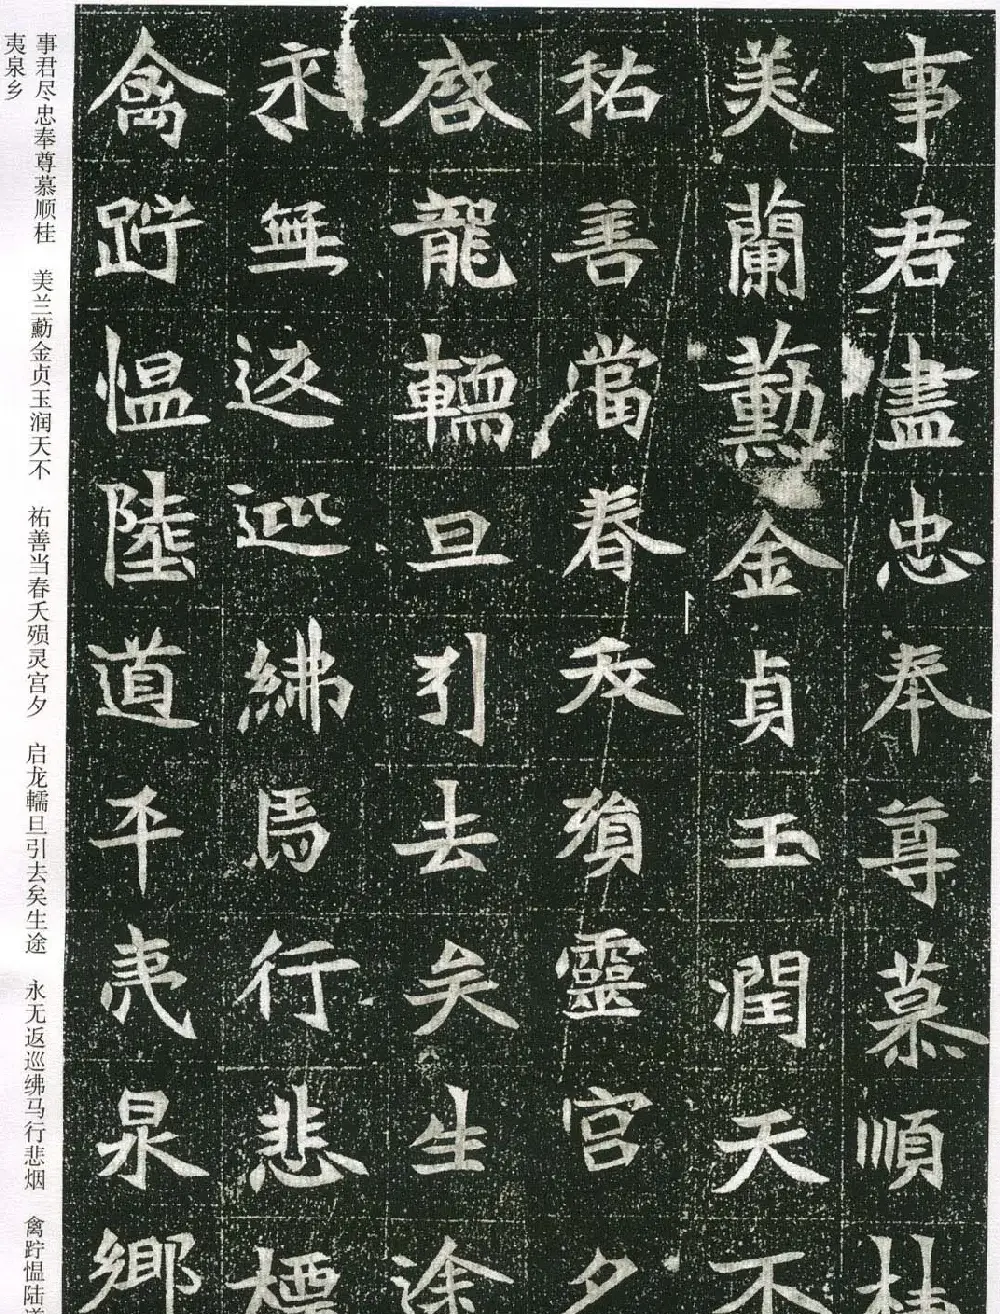 事君盡忠奉尊慕順桂
美蘭勳金貞玉潤天不
祐善當春夭殞靈宮夕
啓龍轜旦引去矣生途
永無返巡紼馬行悲
禽跱愠陸道平夷泉鄉
事君尽忠奉尊慕顺桂 美兰勋金贞玉润天不 祐善当春夭殒灵宫夕 启龙轜旦引去矣生途 永无返巡绋马行悲烟 禽跱愠陆道
夷泉乡